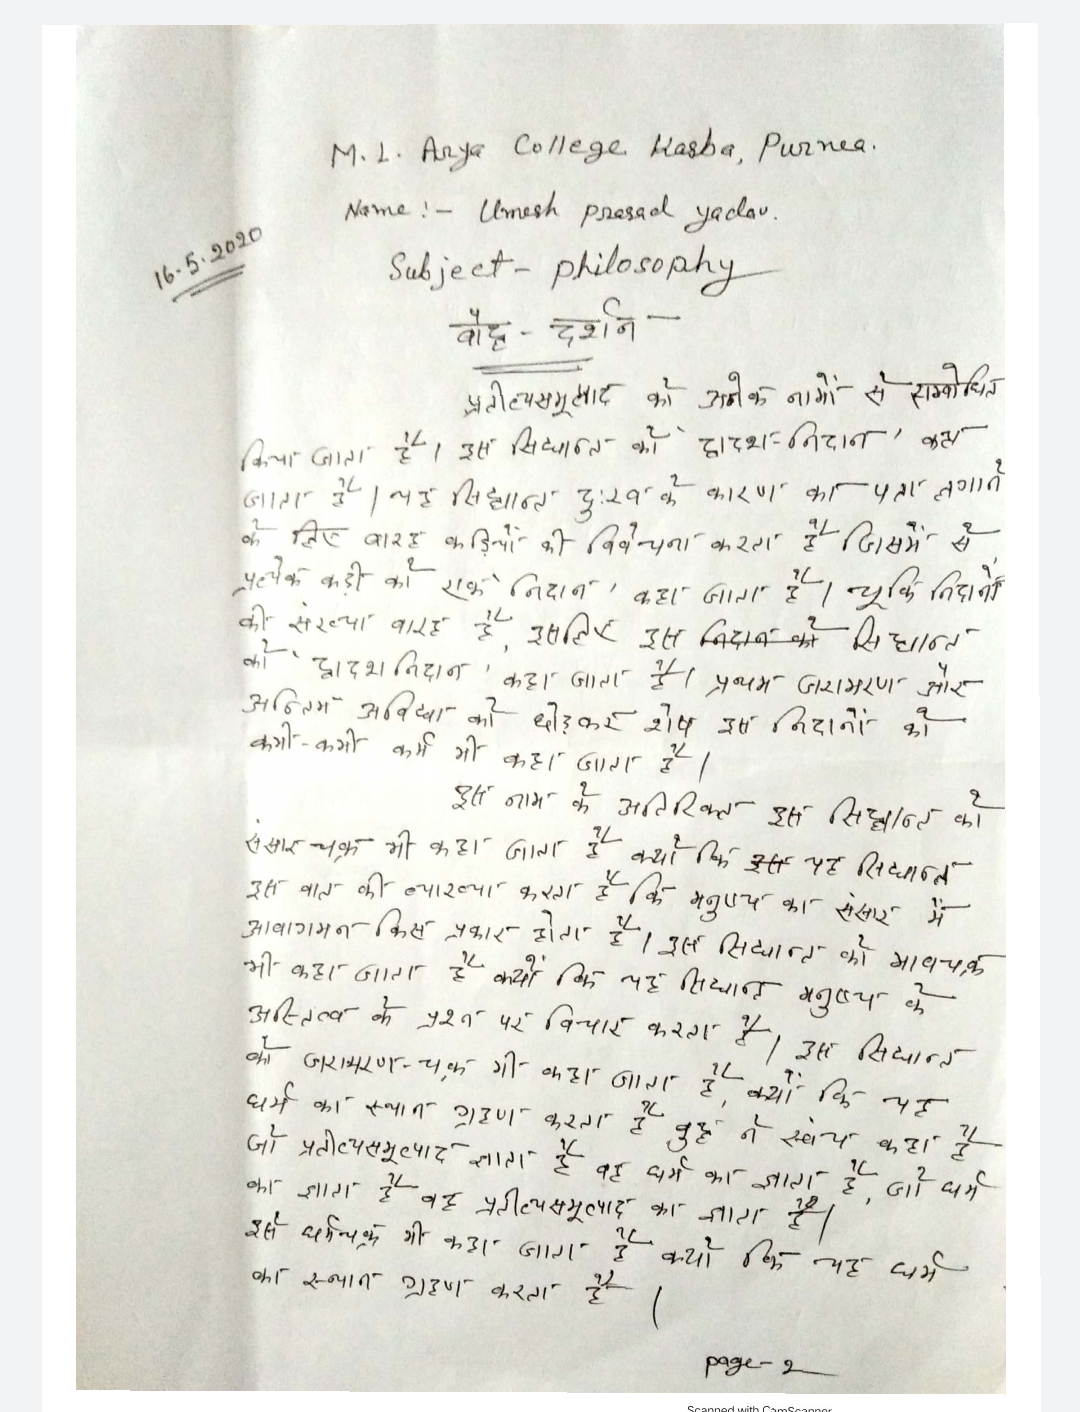 M. L. Arya College Kasba, Purnea.
Name :- Umesh prasad yadav.
16.5.2020
Subject - philosophy
बौद्ध - दर्शन
प्रतीत्यसमुत्पाद को अनेक नामों से सम्बोधित
किया जाता है। इस सिद्धान्त को 'द्वादश-निदान' कहा
जाता है। यह सिद्धान्त दुःख के कारण का पता लगाने
के लिए बारह कड़ियों की विवेचना करता है जिसमें से
प्रत्येक कड़ी को एक 'निदान' कहा जाता है। चूकि निदानों
की संख्या बारह है, इसलिए इस निदान को सिद्धान्त
को 'द्वादश निदान' कहा जाता है। प्रथम जरामरण और
अन्तिम अविद्या को छोड़कर शेष दस निदानों को
कभी-कभी कर्म भी कहा जाता है।
इस नाम के अतिरिक्त इस सिद्धान्त को
संसार चक्र भी कहा जाता है क्यों कि इस यह सिद्धान्त
इस बात की व्याख्या करता है कि मनुष्य का संसार में
आवागमन किस प्रकार होता है। इस सिद्धान्त को भावचक्र
भी कहा जाता है क्यों कि यह सिद्धान्त मनुष्य के
अस्तित्व के प्रश्न पर विचार करता है। इस सिद्धान्त
को जरामरण-चक्र भी कहा जाता है, क्यों कि यह
धर्म का स्थान ग्रहण करता है बुद्ध ने स्वंय कहा है
जो प्रतीत्यसमुत्पाद ज्ञाता है वह धर्म का ज्ञाता है, जो धर्म
का ज्ञाता है वह प्रतीत्यसमुत्पाद का ज्ञाता है।
इसे धर्मचक्र भी कहा जाता है क्यों कि यह धर्म
का स्थान ग्रहण करता है।
page-2
Scanned with CamScanner